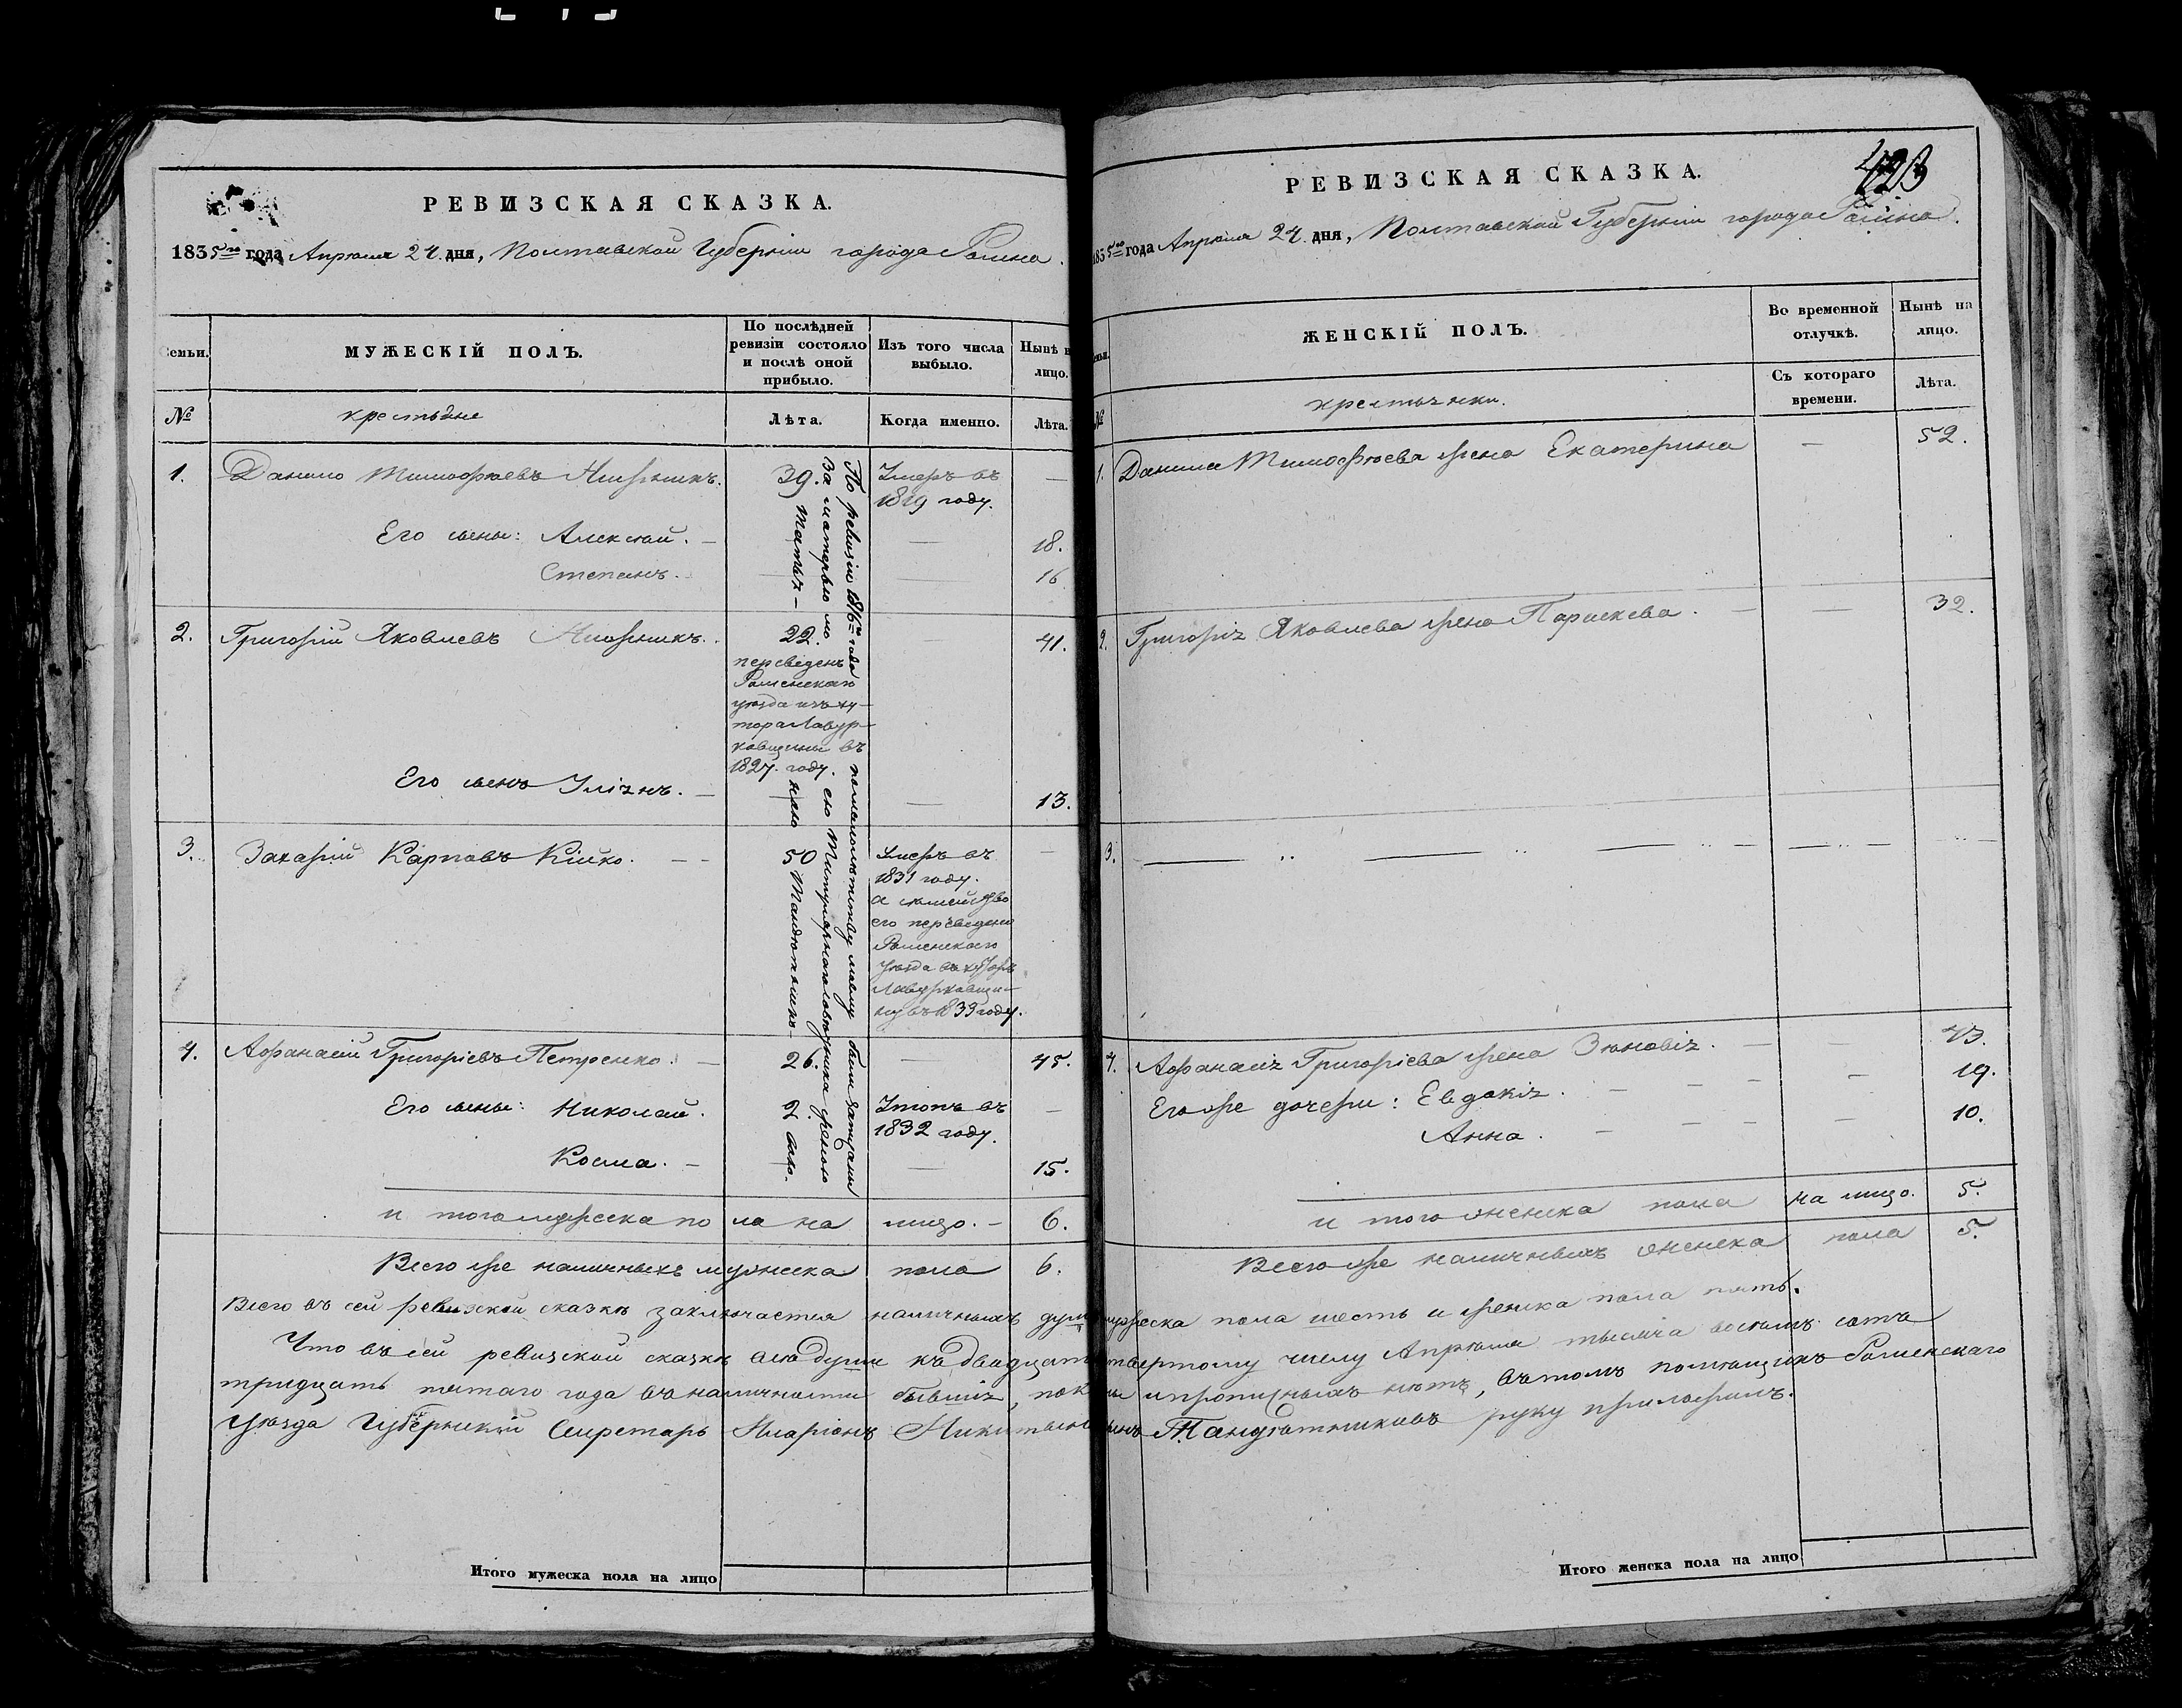 РЕВИЗСКАЯ СКАЗКА.
1835го года Апреля 24 дня, Полтавской Губернии города Ромна.
Семьи.
МУЖЕСКІЙ ПОЛЪ.
По послѣдней ревизіи состояло и послѣ оной прибыло.
Изъ того числа выбыло.
Нынѣ на лицо.
№
крестьяне
Лѣта.
Когда именно.
Лѣта.
1. Данило Тимофѣевъ 39. Умеръ въ —
1819 году.
Его сыны: Алексѣй. — — 18.
Степанъ. — — 16
2. Григорій Яковлевъ 22. — 41.
переведенъ
Роменскаго
уѣзда изъ ху-
тора Лавур-
ковщины въ
1827. году.
Его сынъ Уліянъ. — — 13.
3. Захарій Карповъ Кійко. — — 50 Умеръ въ —
1831 году.
а семейство
его переведено
Роменского
уѣзда въ хуторъ
Лавурковщи-
ну въ 1833 году.
4. Афанасій Григоріевъ Петренко. — 26. — 45.
Его сыны: Николай. 2. Утопъ въ —
1832 году.
Косма. — — — 15.
По ревизіи 1816го года
за матерью мо
ею Титулярнаго Совѣтника женою
и того мужеска пола на лицо. — 6.
Всего же наличныхъ мужеска пола 6.
РЕВИЗСКАЯ СКАЗКА.
423
1835го года Апреля 24 дня, Полтавской Губерніи города Ромна.
Семьи.
ЖЕНСКІЙ ПОЛЪ.
Во временной отлучкѣ.
Нынѣ на лицо.
№
крестьянки.
Съ котораго времени.
Лѣта.
1. Данила Тимофѣева жена Екатерина — 52.
2. Григорія Яковлева жена Параскева. — — 32.
3. — .. — .. — .. — — .. —
4. Афанасія Григоріева жена Зѣновія. — — 43.
Его же дочери: Евдокія. — — — — 19.
Анна. — — — — 10.
и того женска пола на лицо. 5.
Всего же наличныхъ женска пола 5.
Всего въ сей ревизской сказкѣ заключается наличныхъ душъ мужеска пола шесть и женска пола пять.
Что въ сей ревизской сказкѣ всѣ души къ двадцать четвертому числу Апрѣля тысяча восемь сотъ
тридцать пятаго года въ наличности бывшія, показаны и прописныхъ нѣтъ, въ томъ помѣщикъ Роменскаго
Уѣзда Губернскій Секретарь Иларіонъ Никитинъ сынъ руку приложилъ.
Итого мужеска пола на лицо
Итого женска пола на лицо